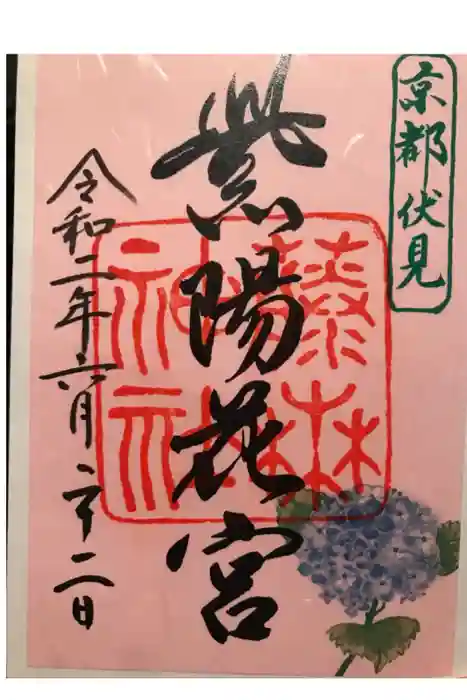 京都伏見
紫陽花宮
藤森
神社
令和二年六月二十二日